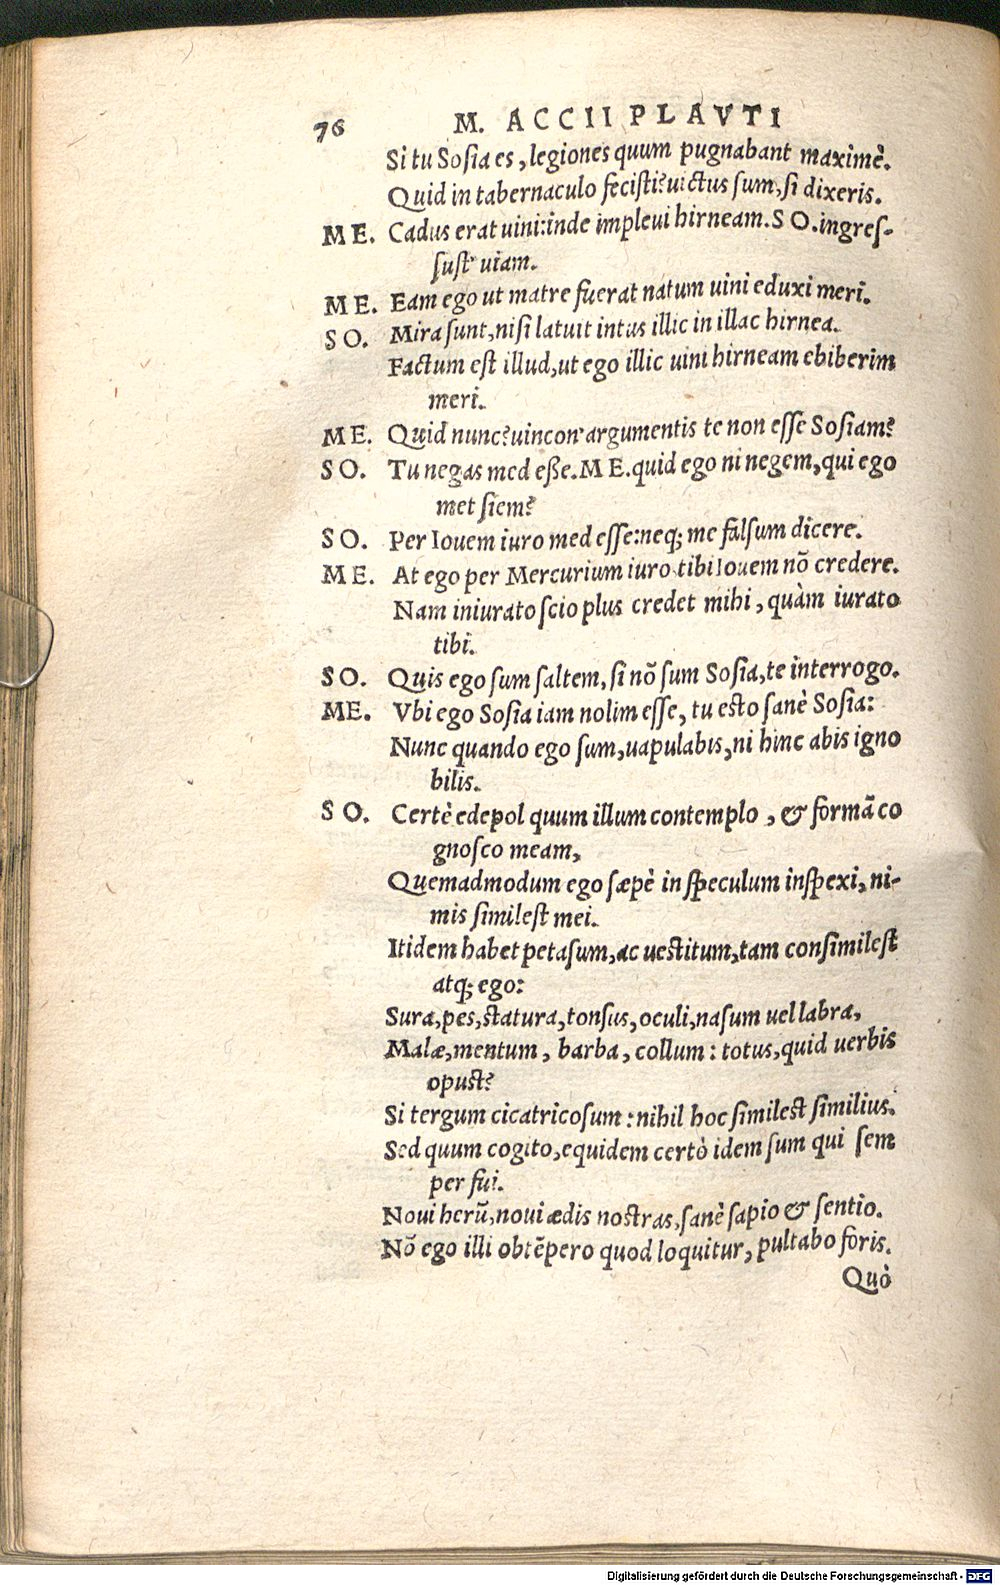 76 M. ACCII PLAVTI
Si tu Sosia es, legiones quum pugnabant maximè.
Quid in tabernaculo fecisti? uictus sum, si dixeris.
ME. Cadus erat uini: inde impleui hirneam. SO. ingres-
sust uiam.
ME. Eam ego ut matre fuerat natum uini eduxi meri.
SO. Mira sunt, nisi latuit intus illic in illac hirnea.
Factum est illud, ut ego illic uini hirneam ebiberim
meri.
ME. Quid nunc? uincon' argumentis te non esse Sosiam?
SO. Tu negas med eße. ME. quid ego ni negem, qui ego
met siem?
SO. Per Iouem iuro med esse: neq; me falsum dicere.
ME. At ego per Mercurium iuro tibi Iouem nõ credere.
Nam iniurato scio plus credet mihi, quàm iurato
tibi.
SO. Quis ego sum saltem, si nõ sum Sosia, te interrogo.
ME. Vbi ego Sosia iam nolim esse, tu esto sanè Sosia:
Nunc quando ego sum, uapulabis, ni hinc abis igno
bilis.
SO. Certè edepol quum illum contemplo, & formã co
gnosco meam,
Quemadmodum ego sæpè in speculum inspexi, ni-
mis similest mei.
Itidem habet petasum, ac uestitum, tam consimilest
atq; ego:
Sura, pes, statura, tonsus, oculi, nasum uel labra,
Malæ, mentum, barba, collum: totus, quid uerbis
opust?
Si tergum cicatricosum: nihil hoc similest similius.
Sed quum cogito, equidem certò idem sum qui sem
per fui.
Noui herũ, noui ædis nostras, sanè sapio & sentio.
Nõ ego illi obtẽpero quod loquitur, pultabo foris.
Quò
Digitalisierung gefördert durch die Deutsche Forschungsgemeinschaft - DFG